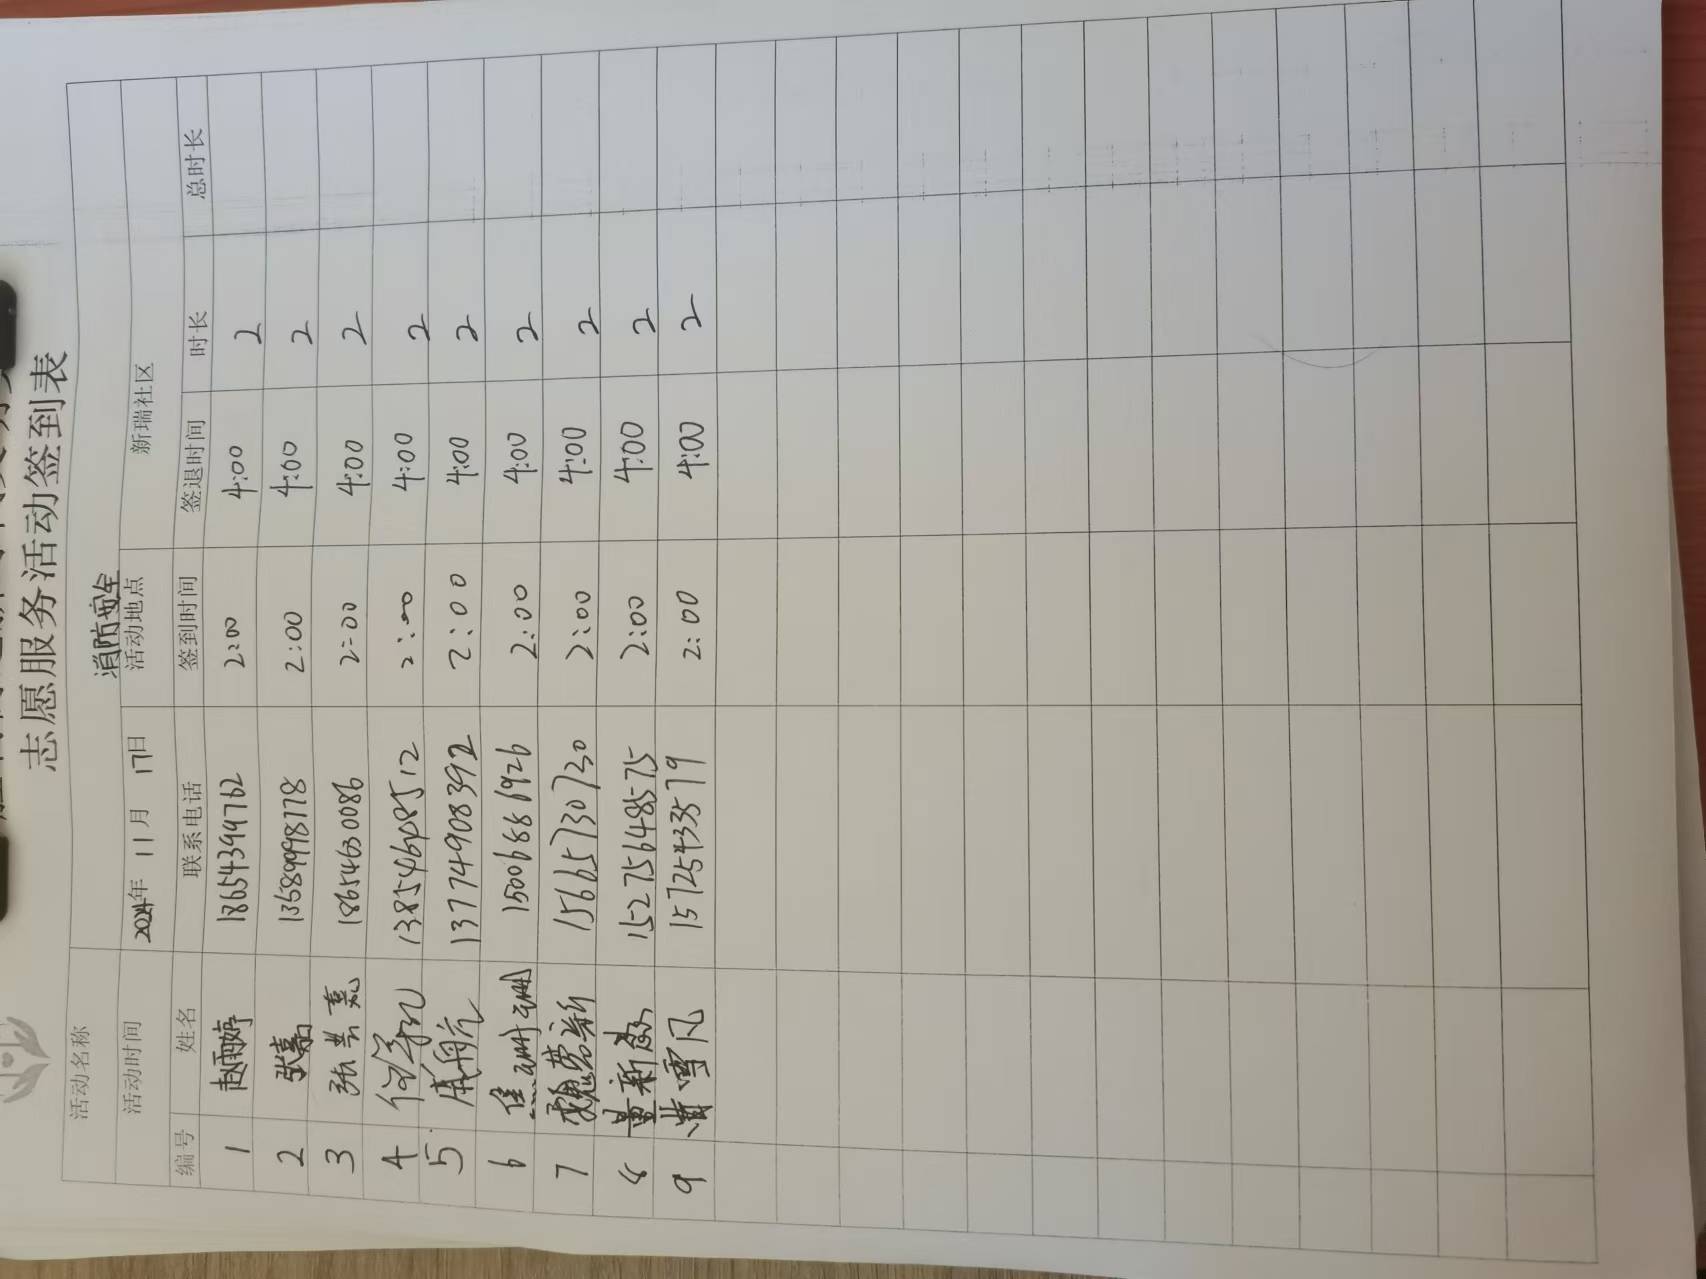 志愿服务活动签到表
活动名称 消防安全
活动时间 2024年 11月 17日 活动地点 新瑞社区
编号 姓名 联系电话 签到时间 签退时间 时长 总时长
1 赵雨婷 18654399762 2:00 4:00 2
2 张嘉 13589998178 2:00 4:00 2
3 18654630086 2:00 4:00 2
4 13854668512 2:00 4:00 2
5 戚舸航 13774908392 2:00 4:00 2
6 焦珊珊 15006886926 2:00 4:00 2
7 魏营新 15665730730 2:00 4:00 2
8 董新森 15275648575 2:00 4:00 2
9 黄雪凡 15725433579 2:00 4:00 2